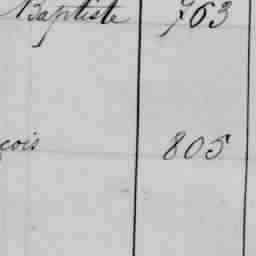 Baptiste 763
çois 805